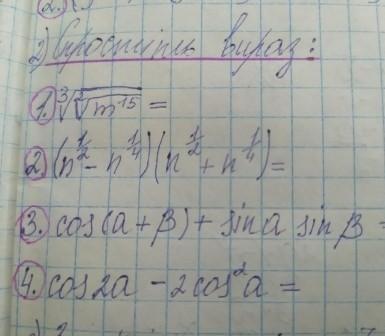 2.
2) Спростіть вираз:
1. ∛√m¹⁵ =
2. (n^½ - n^¼)(n^½ + n^¼) =
3. cos(a + β) + sin a sin β =
4. cos 2a - 2cos²a =